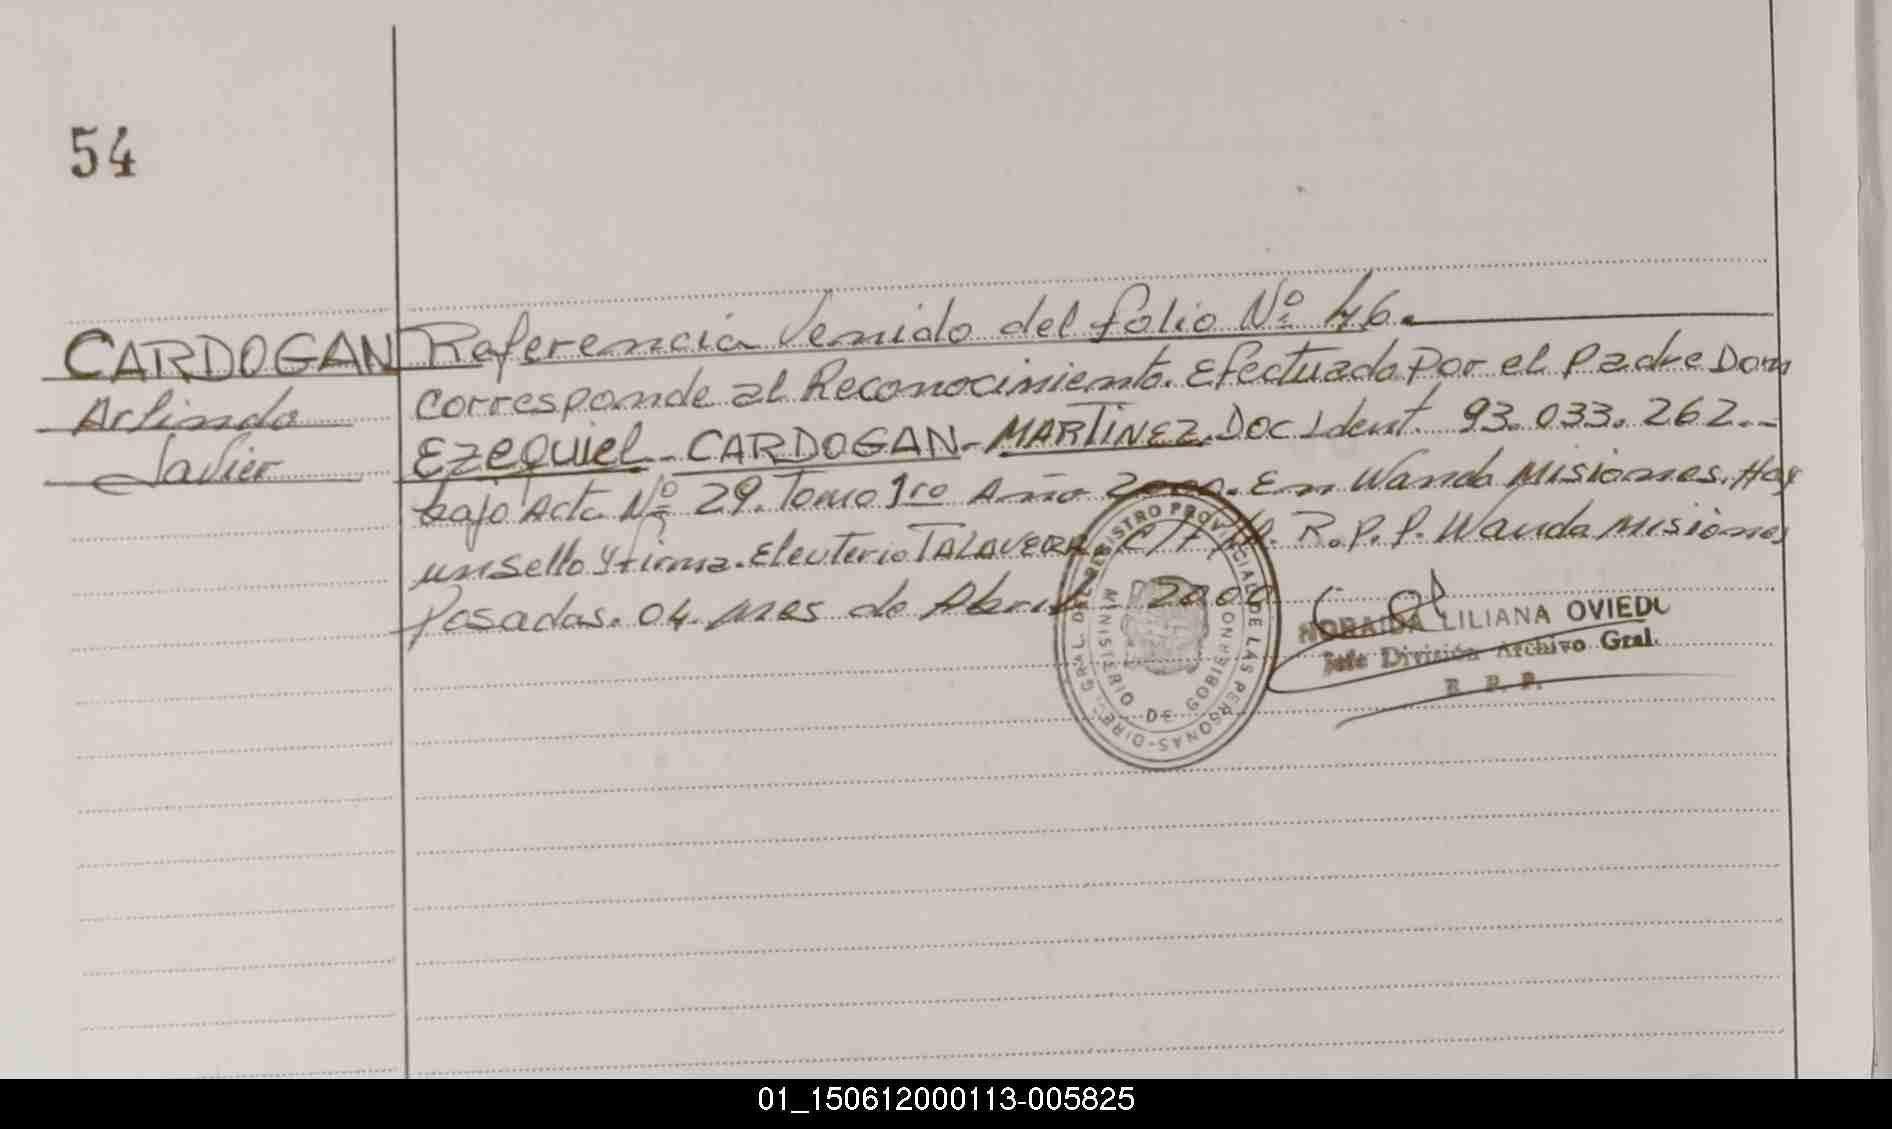 54
CARDOGAN
Arlindo
Javier
Referencia Venido del folio Nº 46.
corresponde al Reconocimiento. Efectuado Por el Padre Don
Ezequiel - CARDOGAN - MARTINEZ. Doc Ident. 93.033.262.-
bajo Acta Nº 29. Tomo 1ro Año 2000. En Wanda Misiones. Hay
un sello y firma. Eleuterio TALAVERA R.P.P. Wanda Misiones
Posadas. 04. mes de Abril 2000
DIREC. GRAL. DEL REGISTRO PROVINCIAL DE LAS PERSONAS
MINISTERIO DE GOBIERNO
NORAIDA LILIANA OVIEDO
Jefe División Archivo Gral.
R. P. P.
01_150612000113-005825